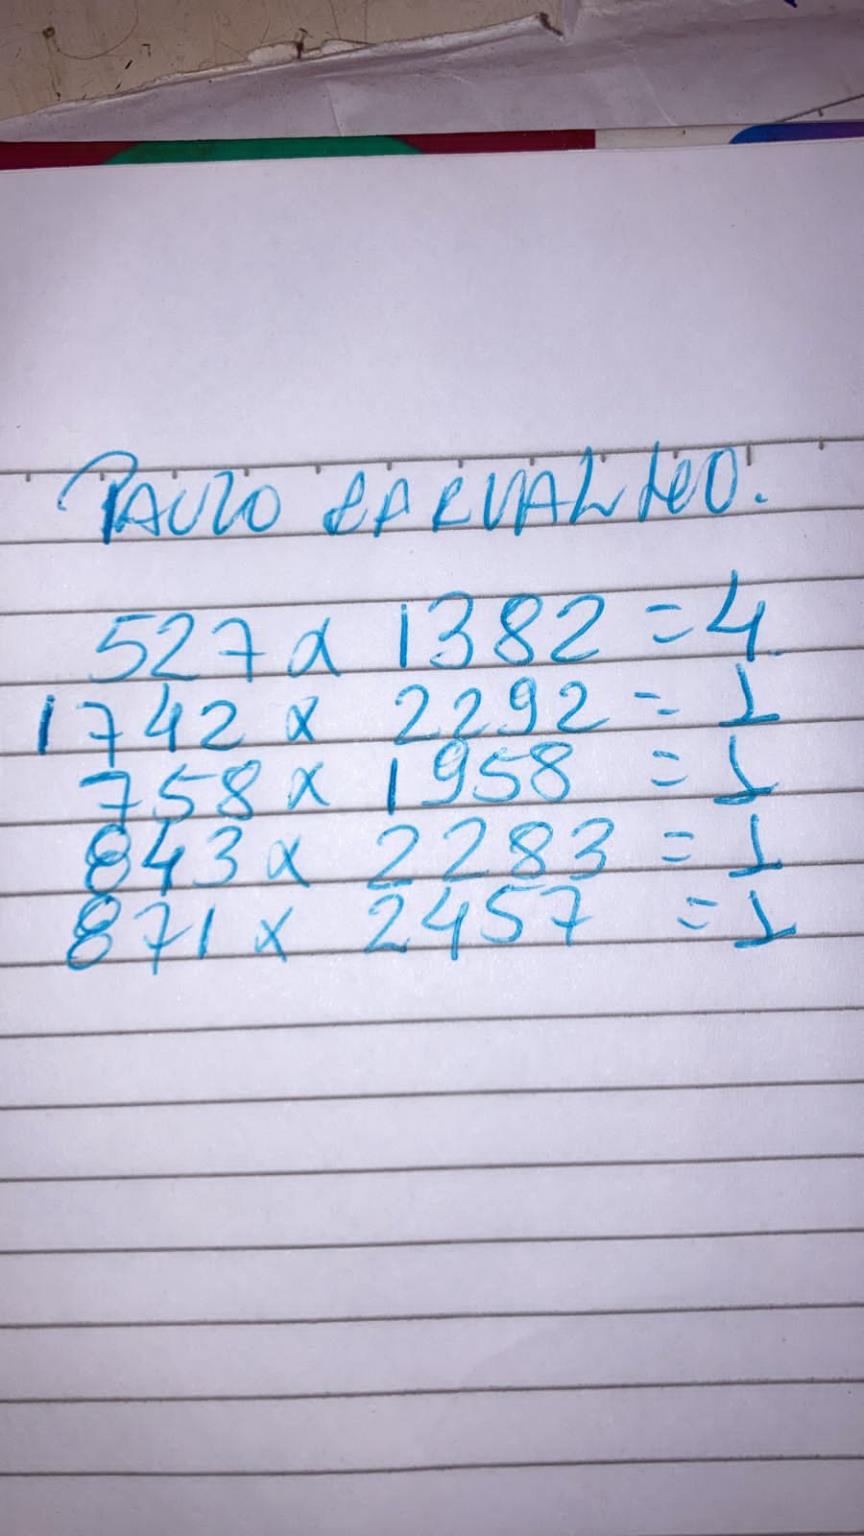 PAULO CARVALHO.
527 x 1382 = 4
1742 x 2292 = 1
758 x 1958 = 1
843 x 2283 = 1
871 x 2457 = 1